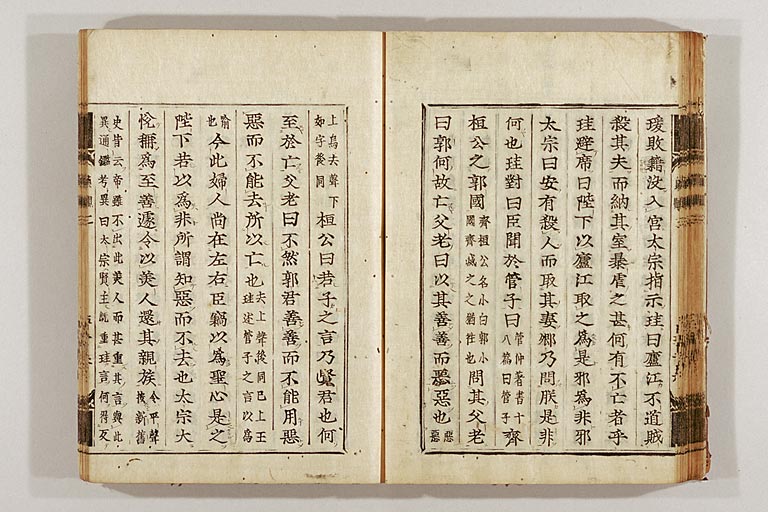 瑗敗籍沒入宮太宗指示珪曰廬江不道賊
殺其夫而納其室暴虐之甚何有不亡者乎
珪避席曰陛下以廬江取之為是邪為非邪
太宗曰安有殺人而取其妻卿乃問朕是非
何也珪對曰臣聞於管子曰管仲著書十八篇曰管子齊
桓公之郭國齊桓公名小白郭小國齊滅之之猶往也問其父老
曰郭何故亡父老曰以其善善而惡惡也惡惡
上烏去聲下如字後同桓公曰若子之言乃賢君也何
至於亡父老曰不然郭君善善而不能用惡
惡而不能去所以亡也夫上聲後同已上王珪述管子之言以為
喻也今此婦人尚在左右臣竊以為聖心是之
陛下若以為非所謂知惡而不去也太宗大
悅稱為至善遽令以美人還其親族令平聲後新舊
史皆云帝雖不出此美人而甚重其言與此異通鑑考異曰太宗賢主既重珪言何得反